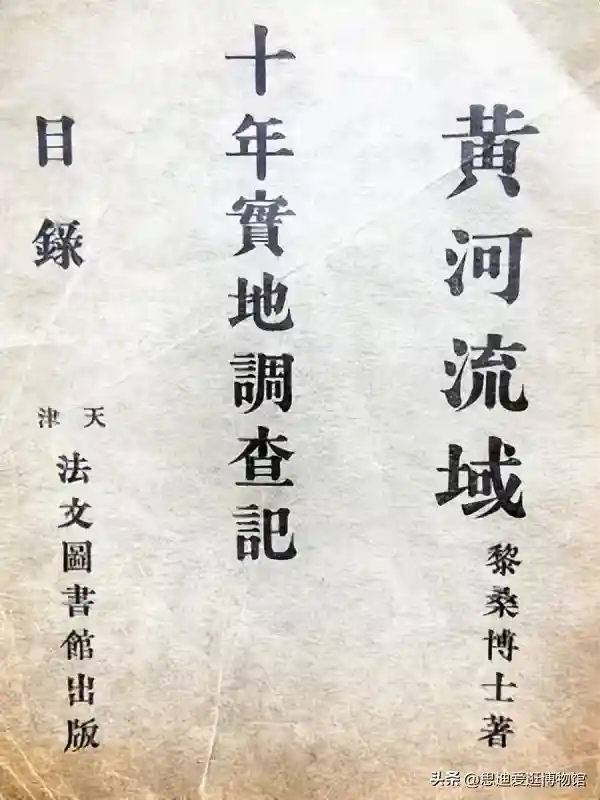 黃河流域
黎桑博士著
十年實地調查記
目錄
天津
法文圖書館出版
头条 @思迪爱逛博物馆